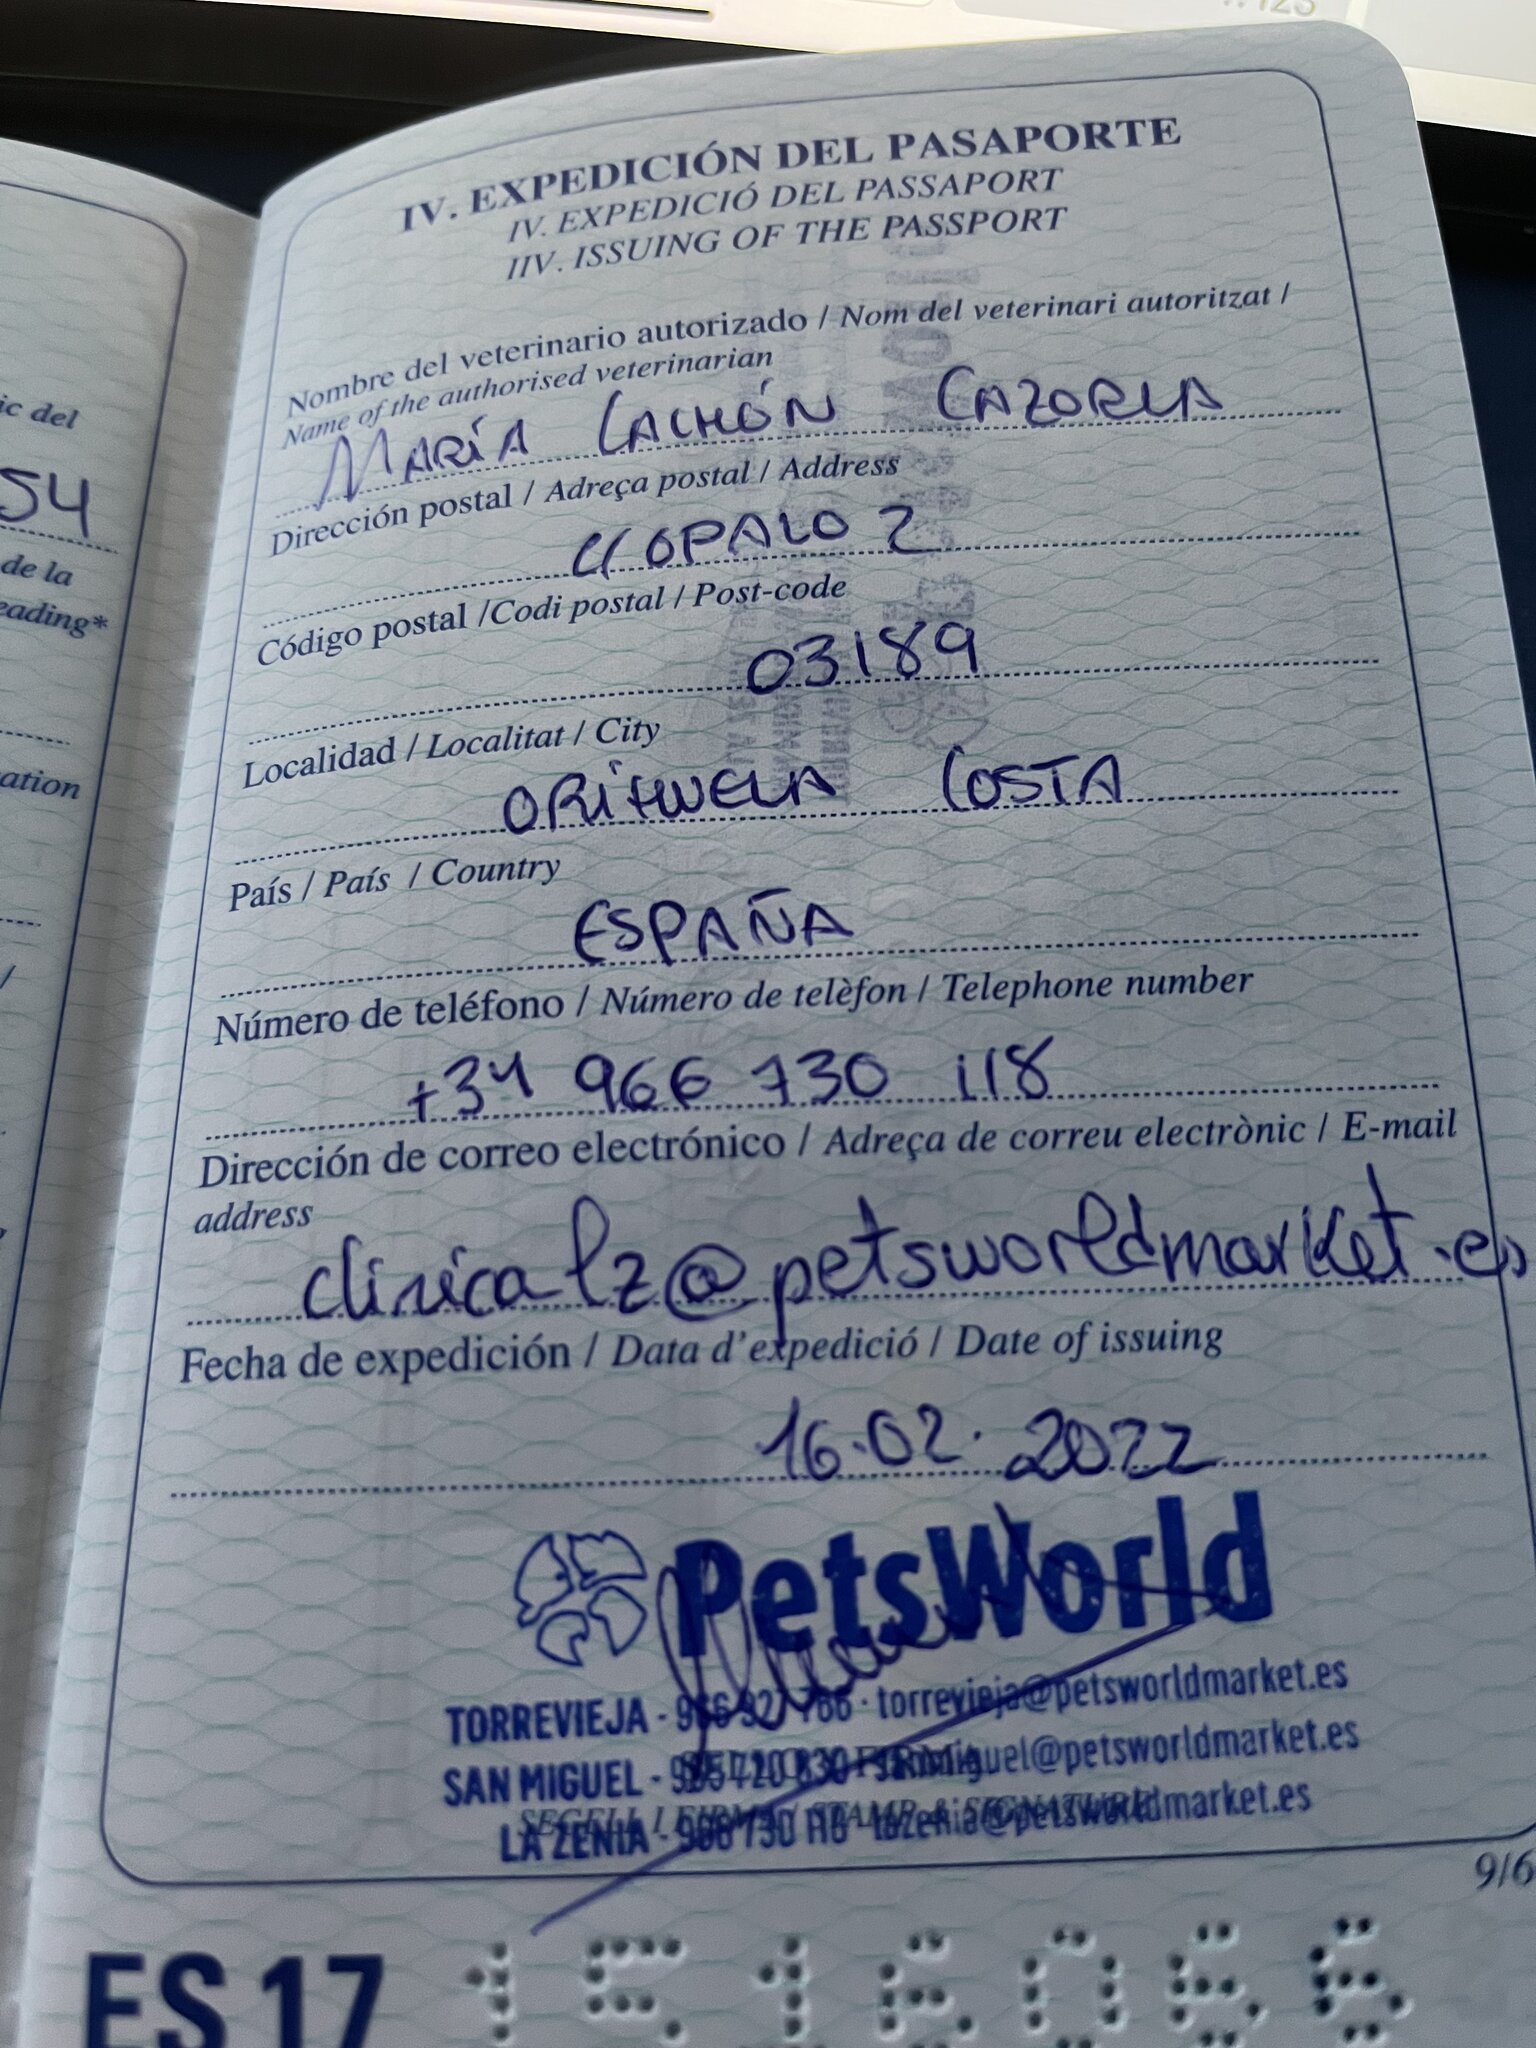 123
ic del
54
de la
eading*
ation
/
IV. EXPEDICIÓN DEL PASAPORTE
IV. EXPEDICIÓ DEL PASSAPORT
IIV. ISSUING OF THE PASSPORT
Nombre del veterinario autorizado / Nom del veterinari autoritzat /
Name of the authorised veterinarian
MARÍA CACHÓN CAZORLA
Dirección postal / Adreça postal / Address
C/ OPALO 2
Código postal /Codi postal / Post-code
03189
Localidad / Localitat / City
ORIHUELA COSTA
País / País / Country
ESPAÑA
Número de teléfono / Número de telèfon / Telephone number
+34 966 730 118
Dirección de correo electrónico / Adreça de correu electrònic / E-mail
address
clinicalz@petsworldmarket.es
Fecha de expedición / Data d'expedició / Date of issuing
16.02.2022
PetsWorld
TORREVIEJA - 766 · torrevieja@petsworldmarket.es
SAN MIGUEL - sanmiguel@petsworldmarket.es
SEGELL I FIRMA / STAMP & SIGNATURE
LA ZENIA - 966 730 118 · lazenia@petsworldmarket.es
9/6
ES 17 1516066